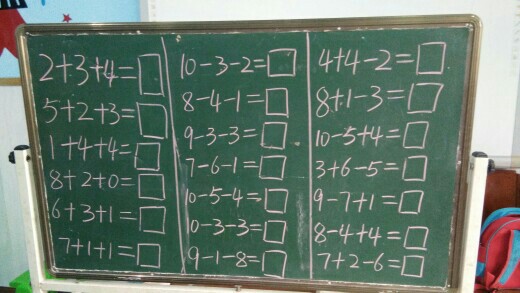 2+3+4=□
5+2+3=□
1+4+4=□
8+2+0=□
6+3+1=□
7+1+1=□
10-3-2=□
8-4-1=□
9-3-3=□
7-6-1=□
10-5-4=□
10-3-3=□
9-1-8=□
4+4-2=□
8+1-3=□
10-5+4=□
3+6-5=□
9-7+1=□
8-4+4=□
7+2-6=□